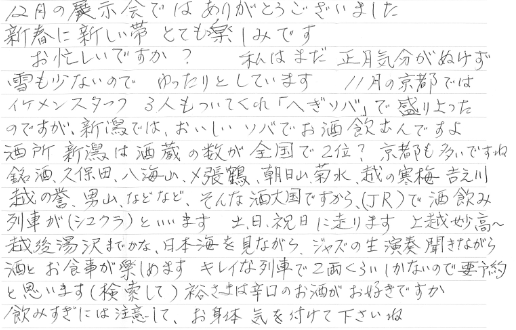 12月の展示会ではありがとうございました
新春に新しい帯 とても楽しみです
お忙しいですか？ 私はまだ 正月気分がぬけず
雪も少ないので ゆったりとしています 11月の京都では
イケメンスタッフ 3人もついてくれ「へぎソバ」で盛り上った
のですが、新潟では、おいしいソバでお酒飲むんですよ
酒所 新潟は酒蔵の数が全国で2位? 京都も多いですね
銘酒、久保田、八海山、〆張鶴、朝日山、菊水、越の寒梅 吉乃川
越の誉、男山、などなど、そんな酒大国ですから、(JR)で酒飲み
列車が(シュクラ)といいます 土、日、祝日に走ります 上越妙高〜
越後湯沢までかな、日本海を見ながら、ジャズの生演奏聞きながら
酒とお食事が楽しめます キレイな列車で2両くらいしかないので要予約
と思います(検索して) 裕さまは辛口のお酒がお好きですか
飲みすぎには注意して、お身体 気を付けて下さいね